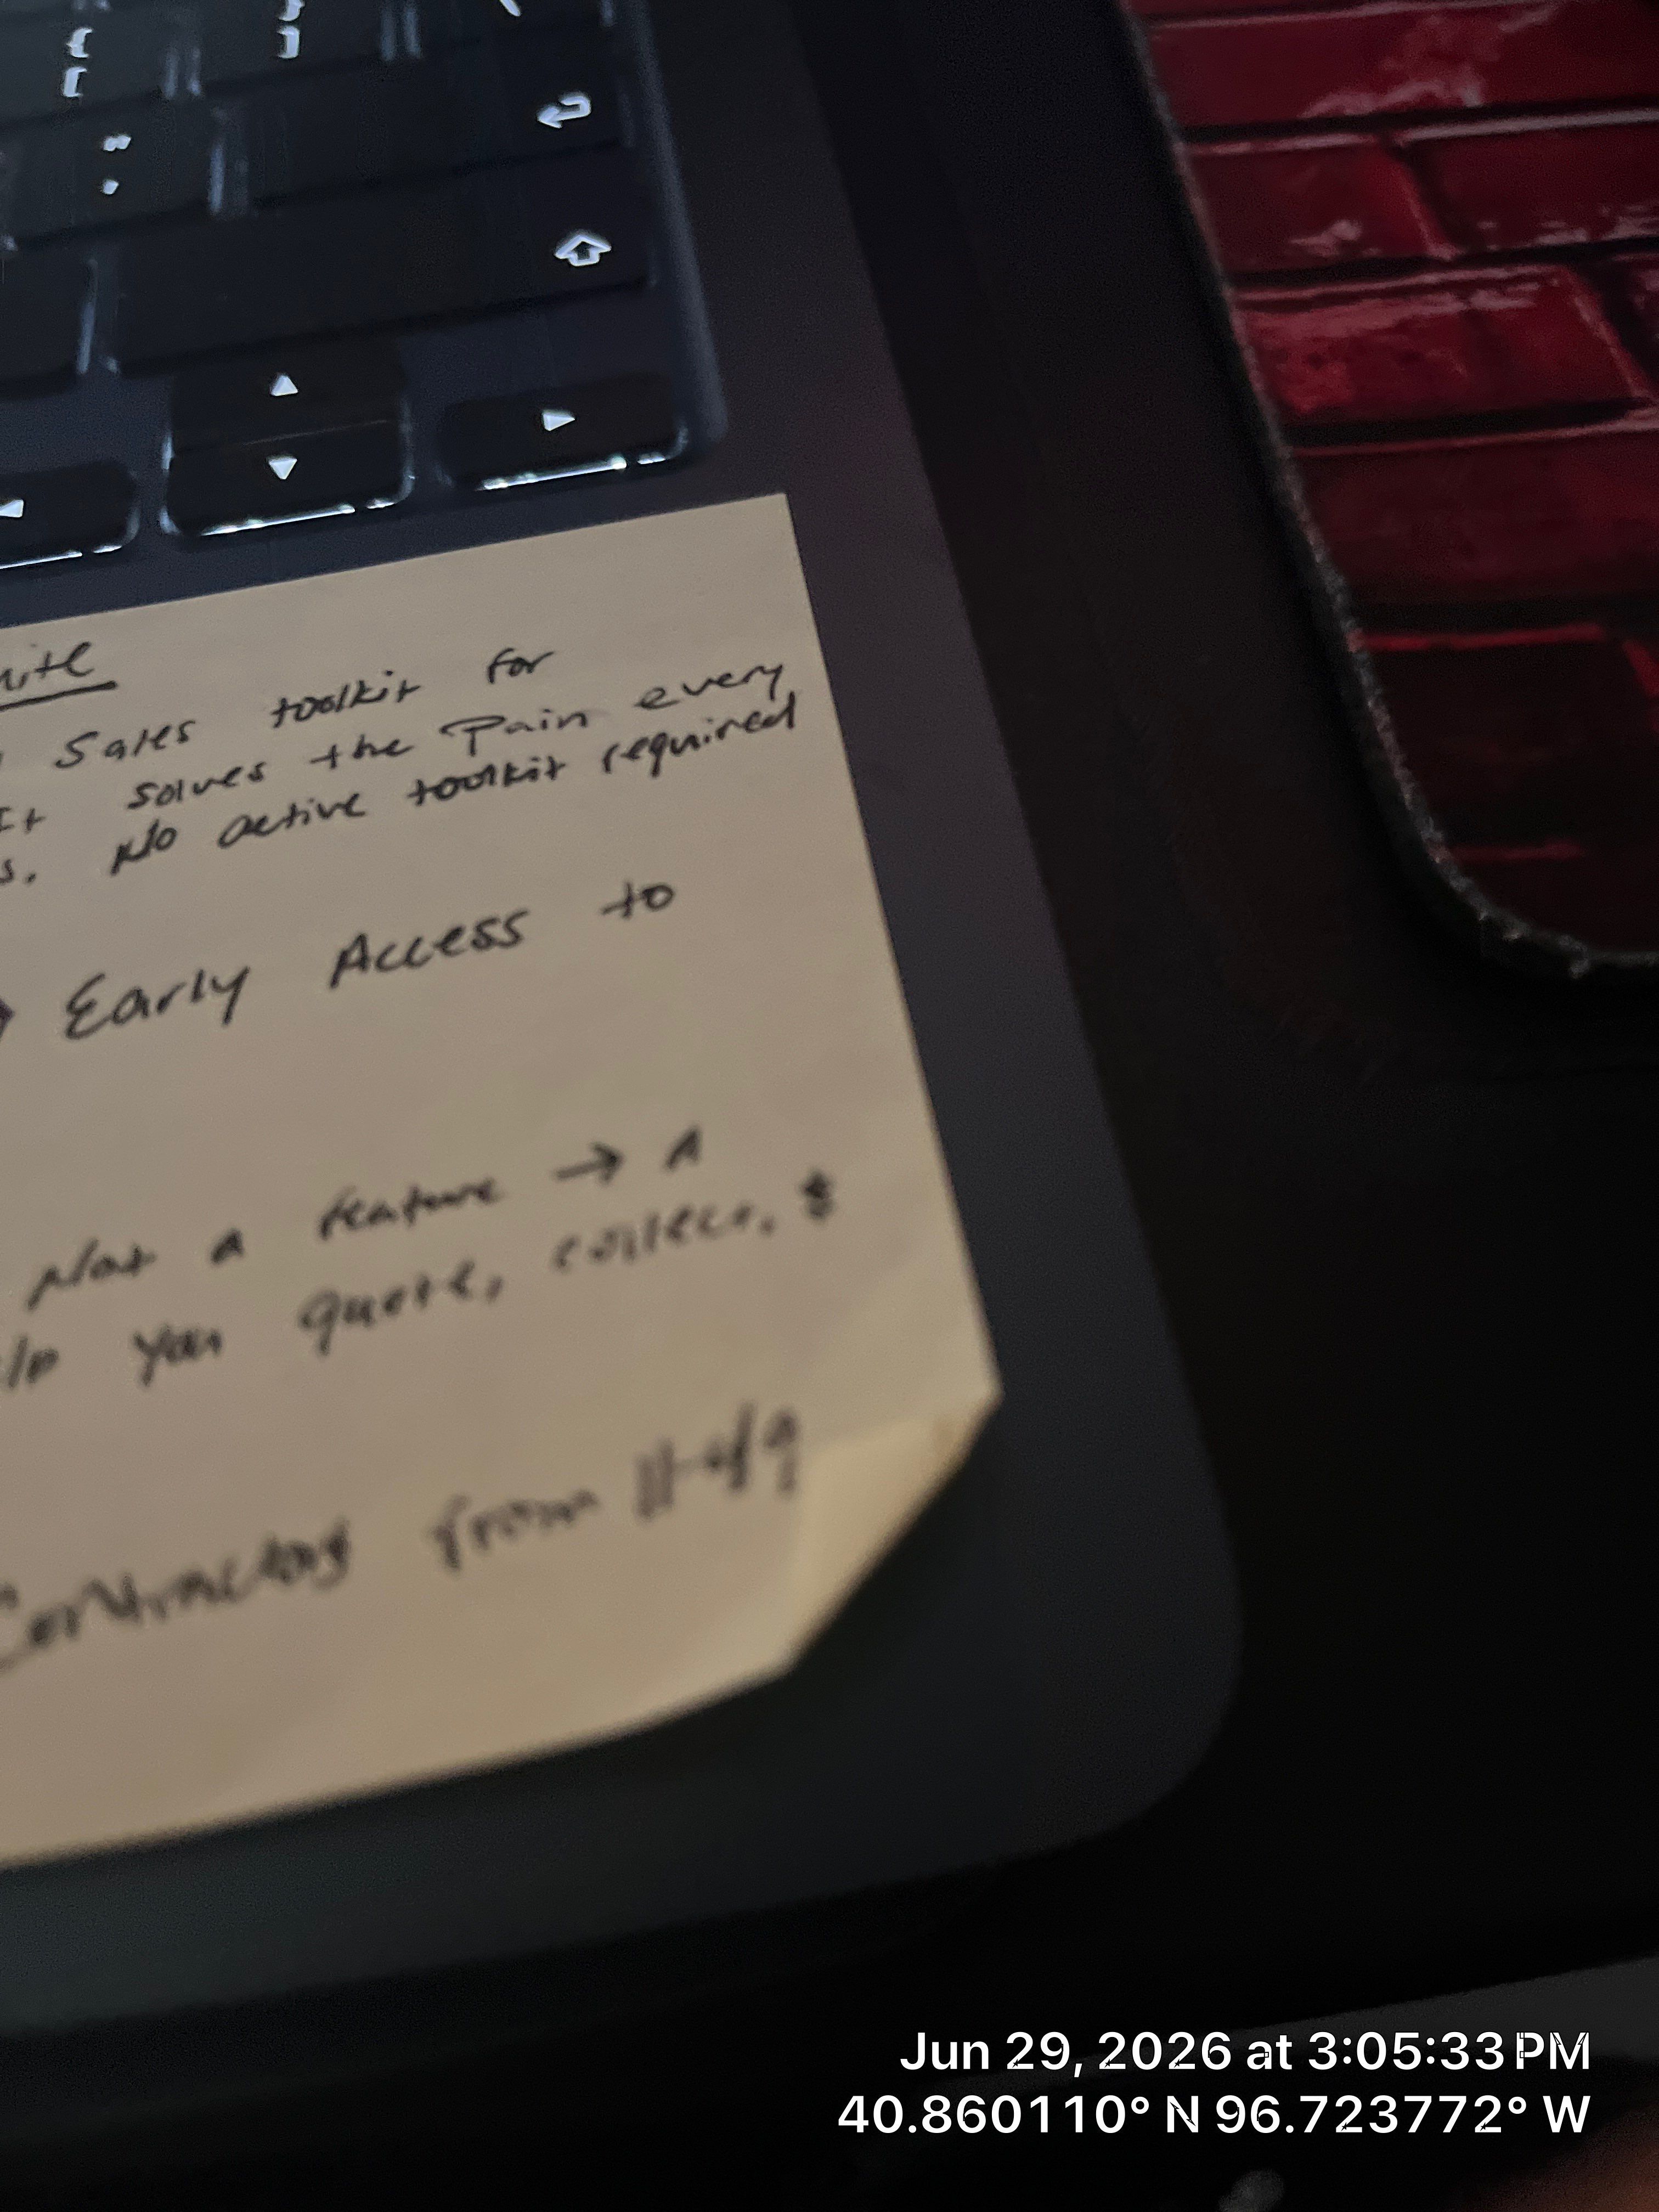 {
[
}
]
"
'
Sales toolkit for
It solves the Pain every
s. No active toolkit required
Early Access to
Not a feature → A
you quote, collect, $
Contractors from
Jun 29, 2026 at 3:05:33 PM
40.860110° N 96.723772° W